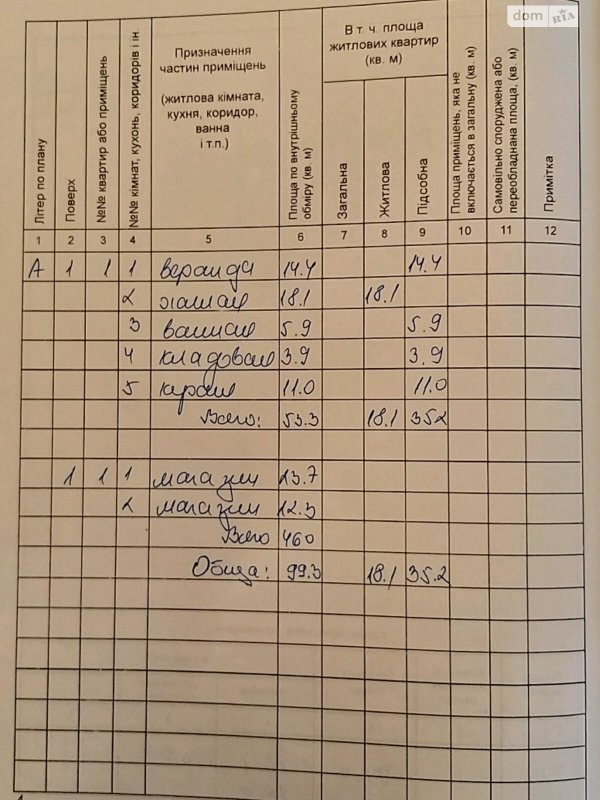 dom RIA
Літер по плану
Поверх
№№ квартир або приміщень
№№ кімнат, кухонь, коридорів і ін
Призначення
частин приміщень
(житлова кімната,
кухня, коридор,
ванна
і т.п.)
Площа по внутрішньому
обміру (кв. м)
В т. ч. площа
житлових квартир
(кв. м)
Загальна
Житлова
Підсобна
Площа приміщень, яка не
включається в загальну (кв. м)
Самовільно споруджена або
переобладнана площа, (кв. м)
Примітка
1 2 3 4 5 6 7 8 9 10 11 12
А 1 1 1 веранда 14.4 14.4
2 жилая 18.1 18.1
3 ванная 5.9 5.9
4 кладовая 3.9 3.9
5 11.0 11.0
Всего: 53.3 18.1 35.2
1 1 1 магазин 23.7
2 магазин
Всего 46.0
Обща: 99.3 18.1 35.2